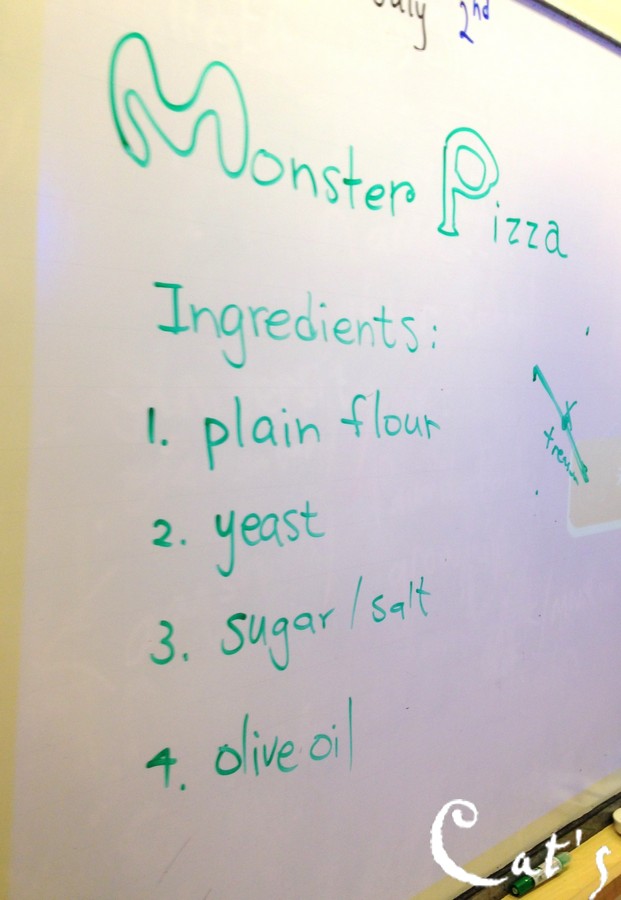 July 2nd
Monster Pizza
Ingredients:
1. plain flour
2. yeast
3. sugar/salt
4. olive oil
Cat's